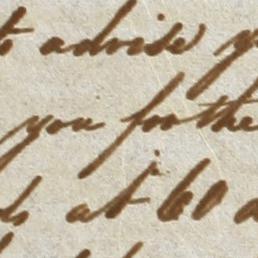 to advise y
you for the
ds at 60 d